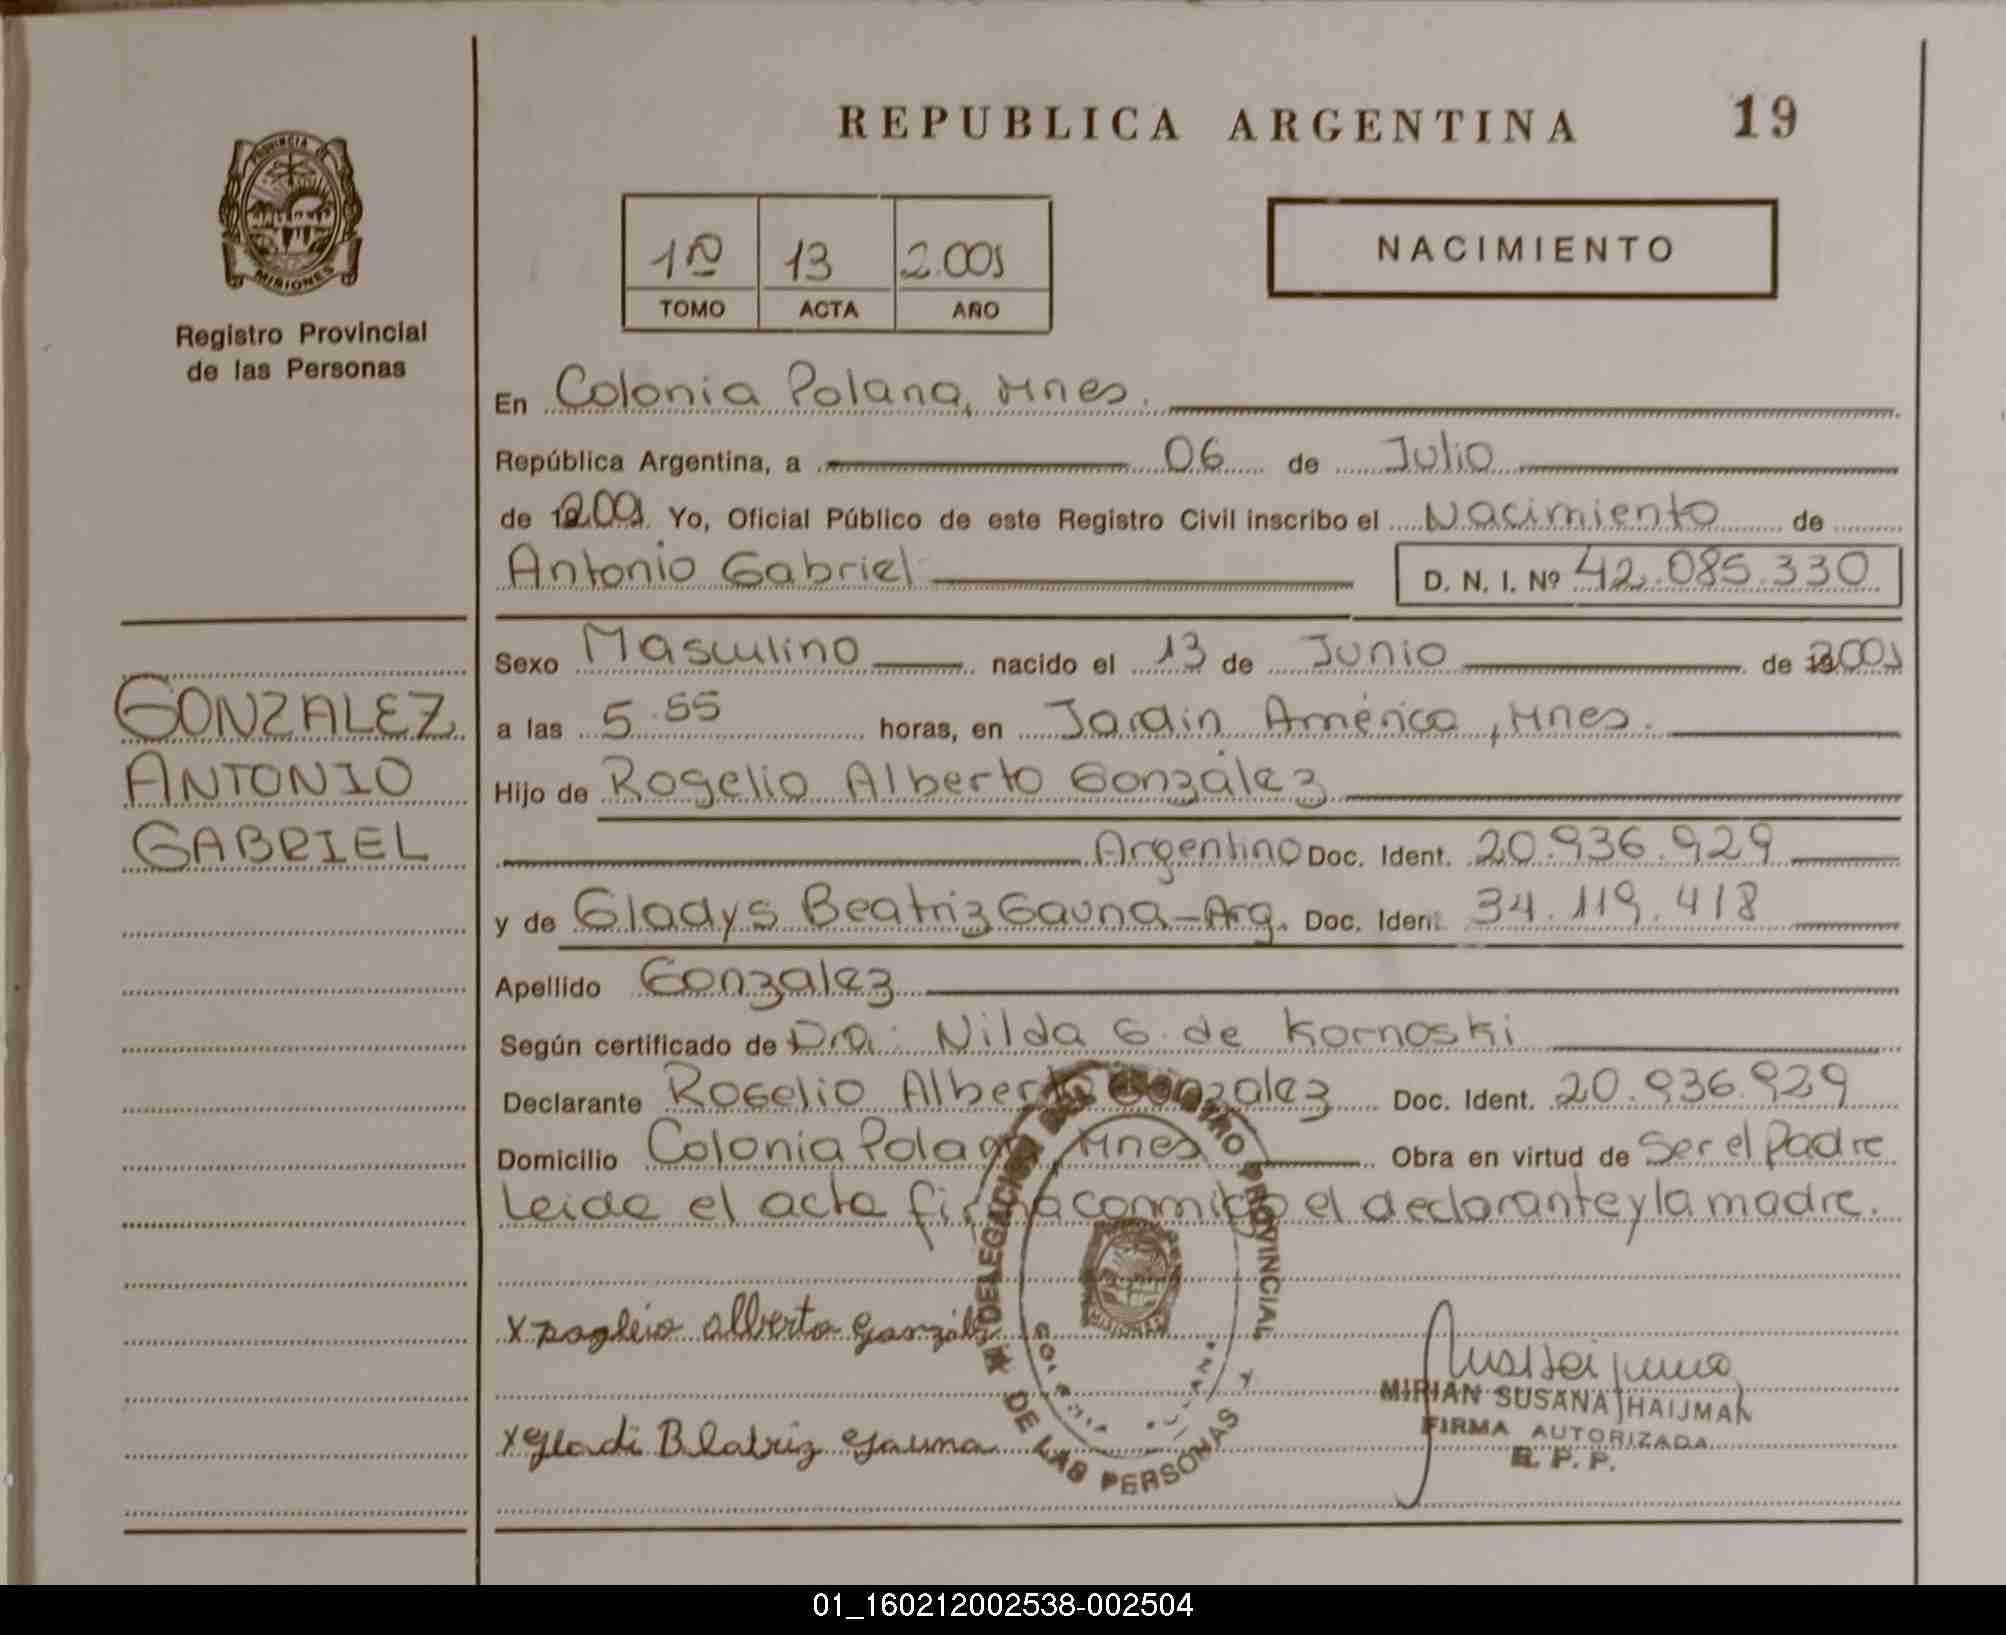 REPUBLICA ARGENTINA 19
PROVINCIA DE
MISIONES
Registro Provincial
de las Personas
1º 13 2.001
TOMO ACTA AÑO
NACIMIENTO
En Colonia Polana, Mnes.
República Argentina, a 06 de Julio
de 2001 Yo, Oficial Público de este Registro Civil inscribo el Nacimiento de
Antonio Gabriel D. N. I. Nº 42.085.330
Sexo Masculino nacido el 13 de Junio de 2001
GONZALEZ
ANTONIO
GABRIEL
a las 5.55 horas, en Jardin América, Mnes.
Hijo de Rogelio Alberto González
Argentino Doc. Ident. 20.936.929
y de Gladys Beatriz Gauna - Arg. Doc. Ident. 34.119.418
Apellido Gonzalez
Según certificado de Dra. Nilda G. de Kornoski
Declarante Rogelio Alberto Gonzalez Doc. Ident. 20.936.929
Domicilio Colonia Polana, Mnes Obra en virtud de Ser el Padre
Leida el acta firma conmigo el declarante y la madre.
DELEGACION DEL REGISTRO PROVINCIAL
DE LAS PERSONAS
COLONIA POLANA
x Rogleio alberto González
x Gladi Blatriz gauna
MIRIAN SUSANA HAIJMAN
FIRMA AUTORIZADA
R. P. P.
01_160212002538-002504